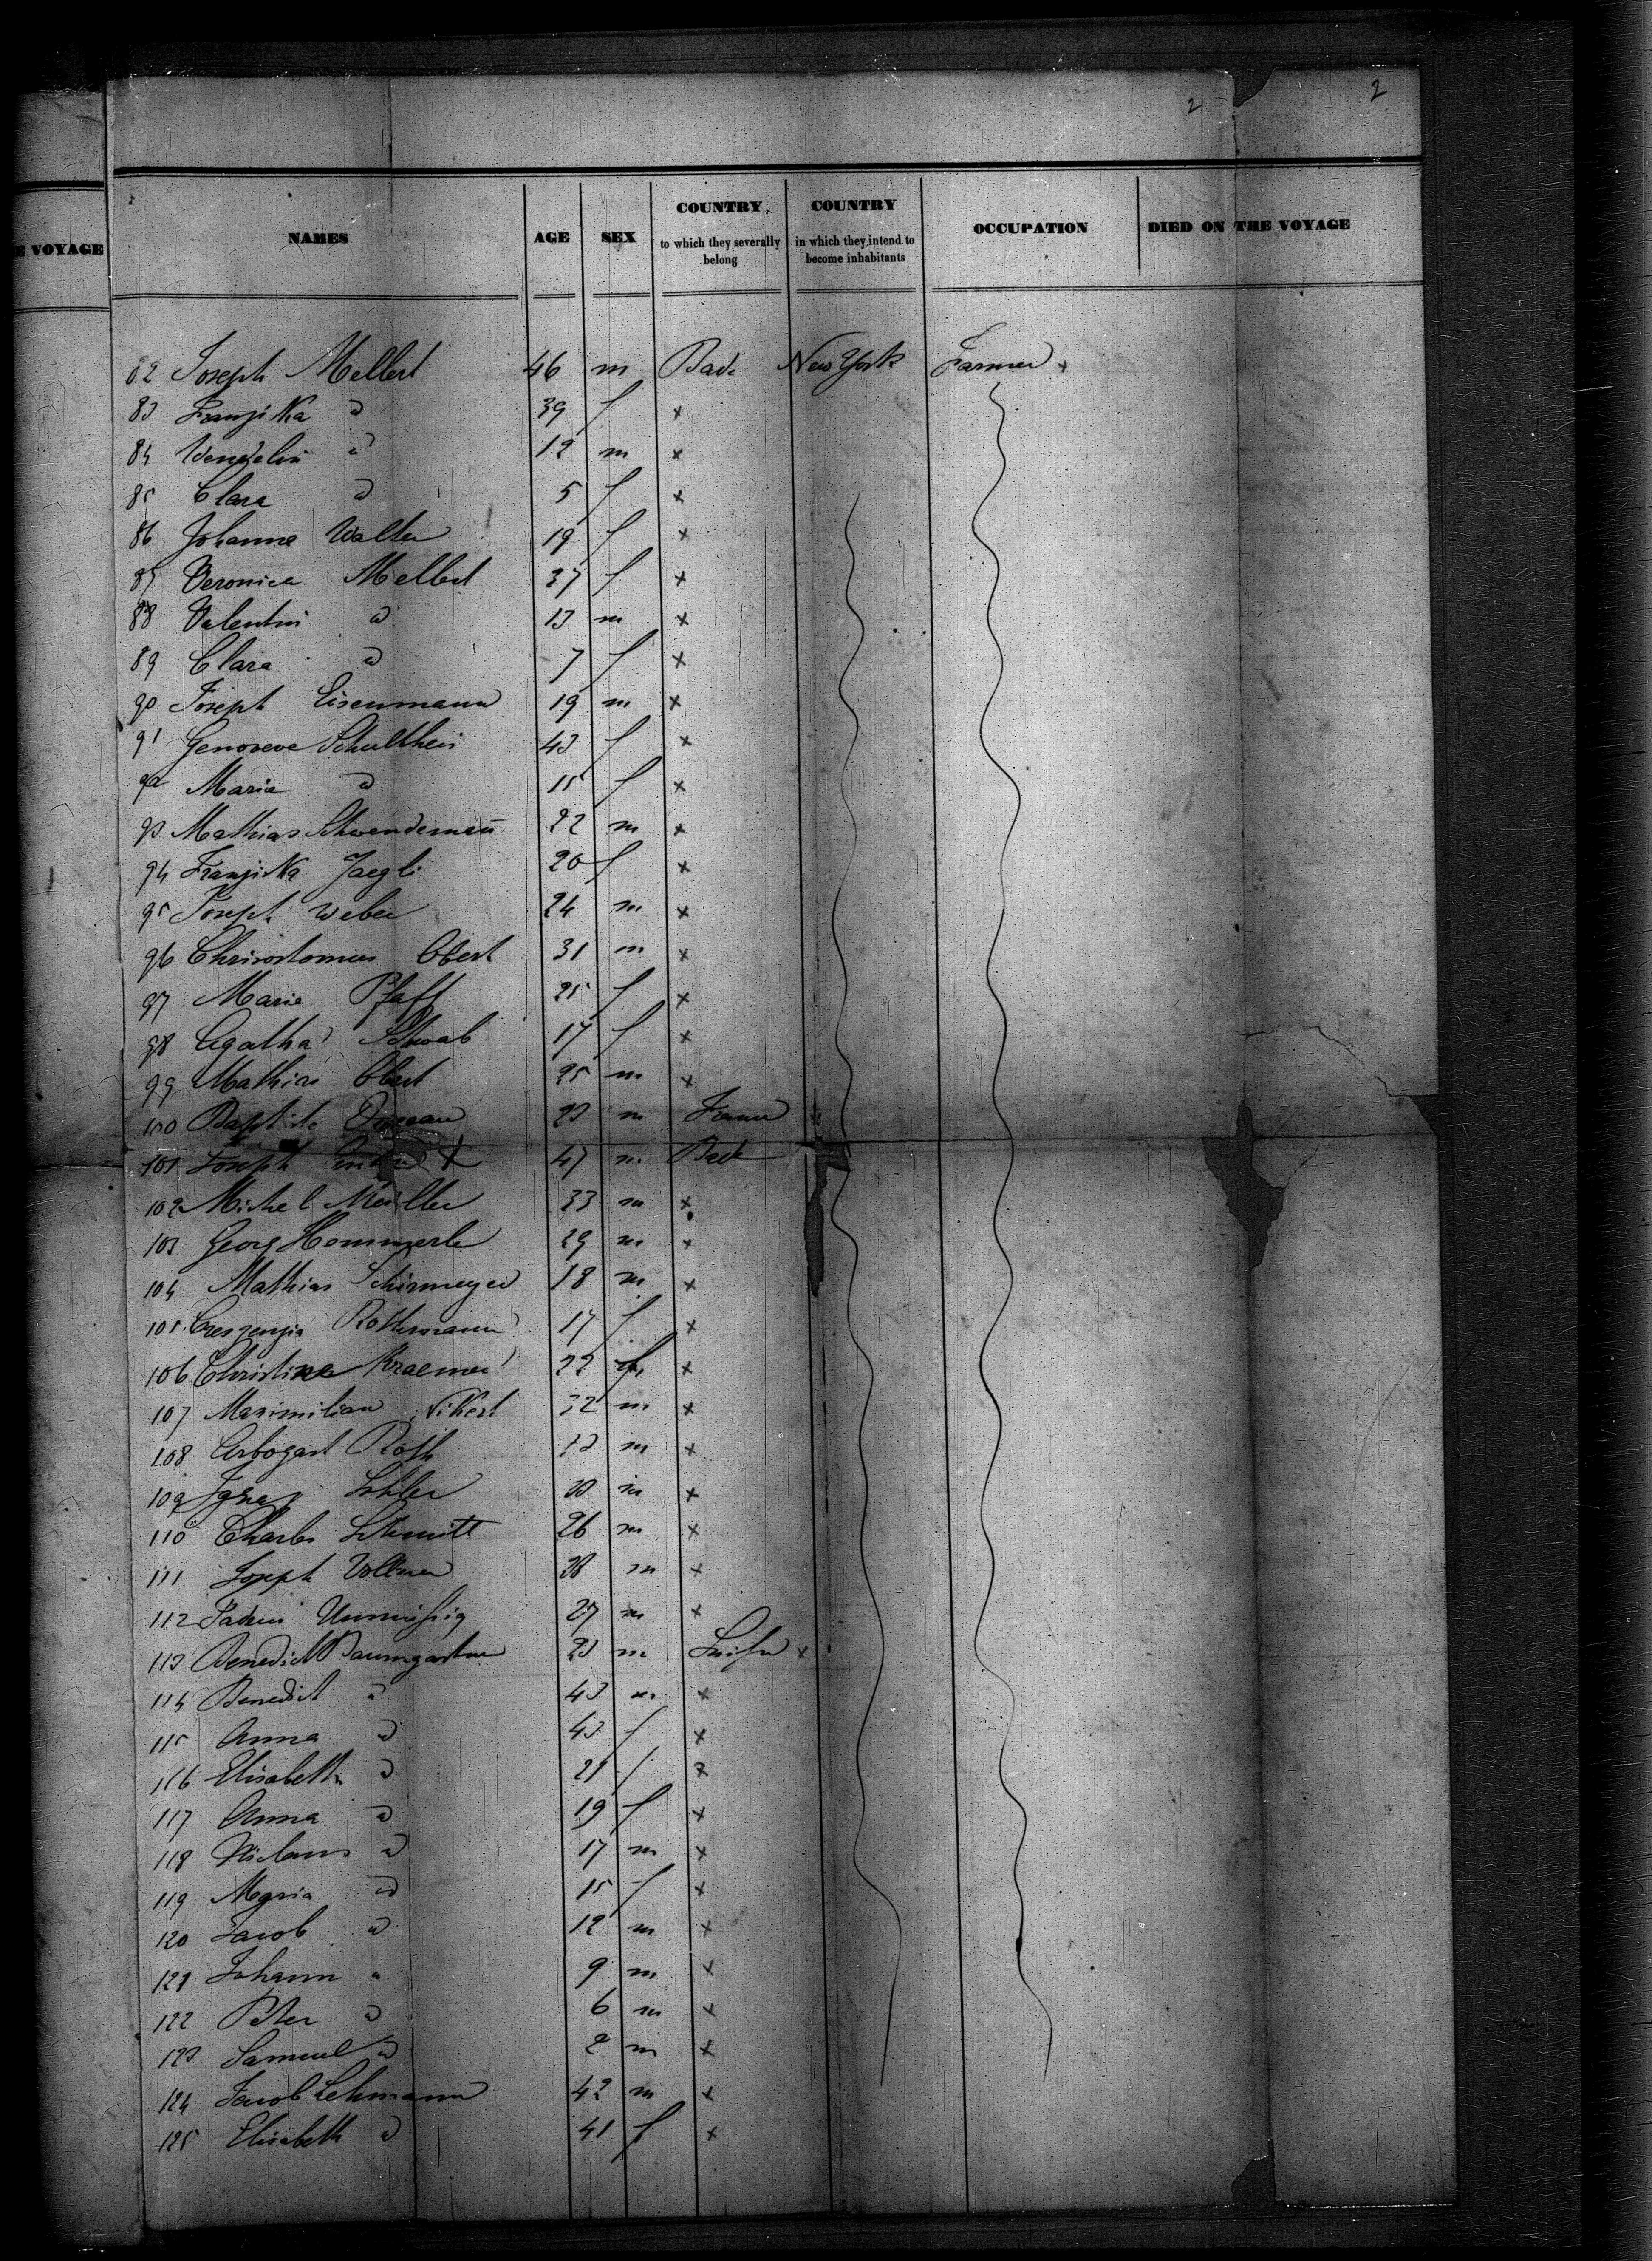 2 2
E VOYAGE
NAMES AGE SEX COUNTRY, to which they severally belong COUNTRY in which they intend to become inhabitants OCCUPATION DIED ON THE VOYAGE
82 Joseph Mellert 46 m Bade New York Farmer
83 Franziska d 39 f x
84 Wendelin d 12 m x
85 Clara d 5 f x
86 Johanna Walter 19 f x
87 Veronica Mellert 37 f x
88 Valentin d 13 m x
89 Clara d 7 f x
90 Joseph Eisenmann 19 m x
91 Genoveve Schultheis 43 f x
92 Maria d 15 f x
93 Mathias Schwendeman 22 m x
94 Franziska Jaegli 20 f x
95 Joseph Weber 24 m x
96 Chrisostomus Obert 31 m x
97 Marie Pfaff 25 f x
98 Agatha Schwab 17 f x
99 Mathias Obert 25 m x
100 Baptiste 23 m France
101 Joseph 47 m Bade
102 Michel Müller 33 m x
103 Georg Hommerle 29 m x
104 Mathias Schirmeyer 18 m x
105 Creszenzia Rothmann 17 f x
106 Christine Kraemer 22 f x
107 Maximilian 32 m x
108 Arbogast Roth 13 m x
109 Ignaz 30 m x
110 Charles Schmitt 26 m x
111 Joseph Vollmer 38 m x
112 Unmüssig 27 m x
113 Benedict Baumgartner 23 m x
114 Benedict d 43 m x
115 Anna d 43 f x
116 Elisabeth d 21 f x
117 Anna d 19 f x
118 Niclaus d 17 m x
119 Maria d 15 f x
120 Jacob d 12 m x
121 Johann " 9 m x
122 Peter d 6 m x
123 Samuel d 2 m x
124 Jacob Lehmann 42 m x
125 Elisabeth d 41 f x